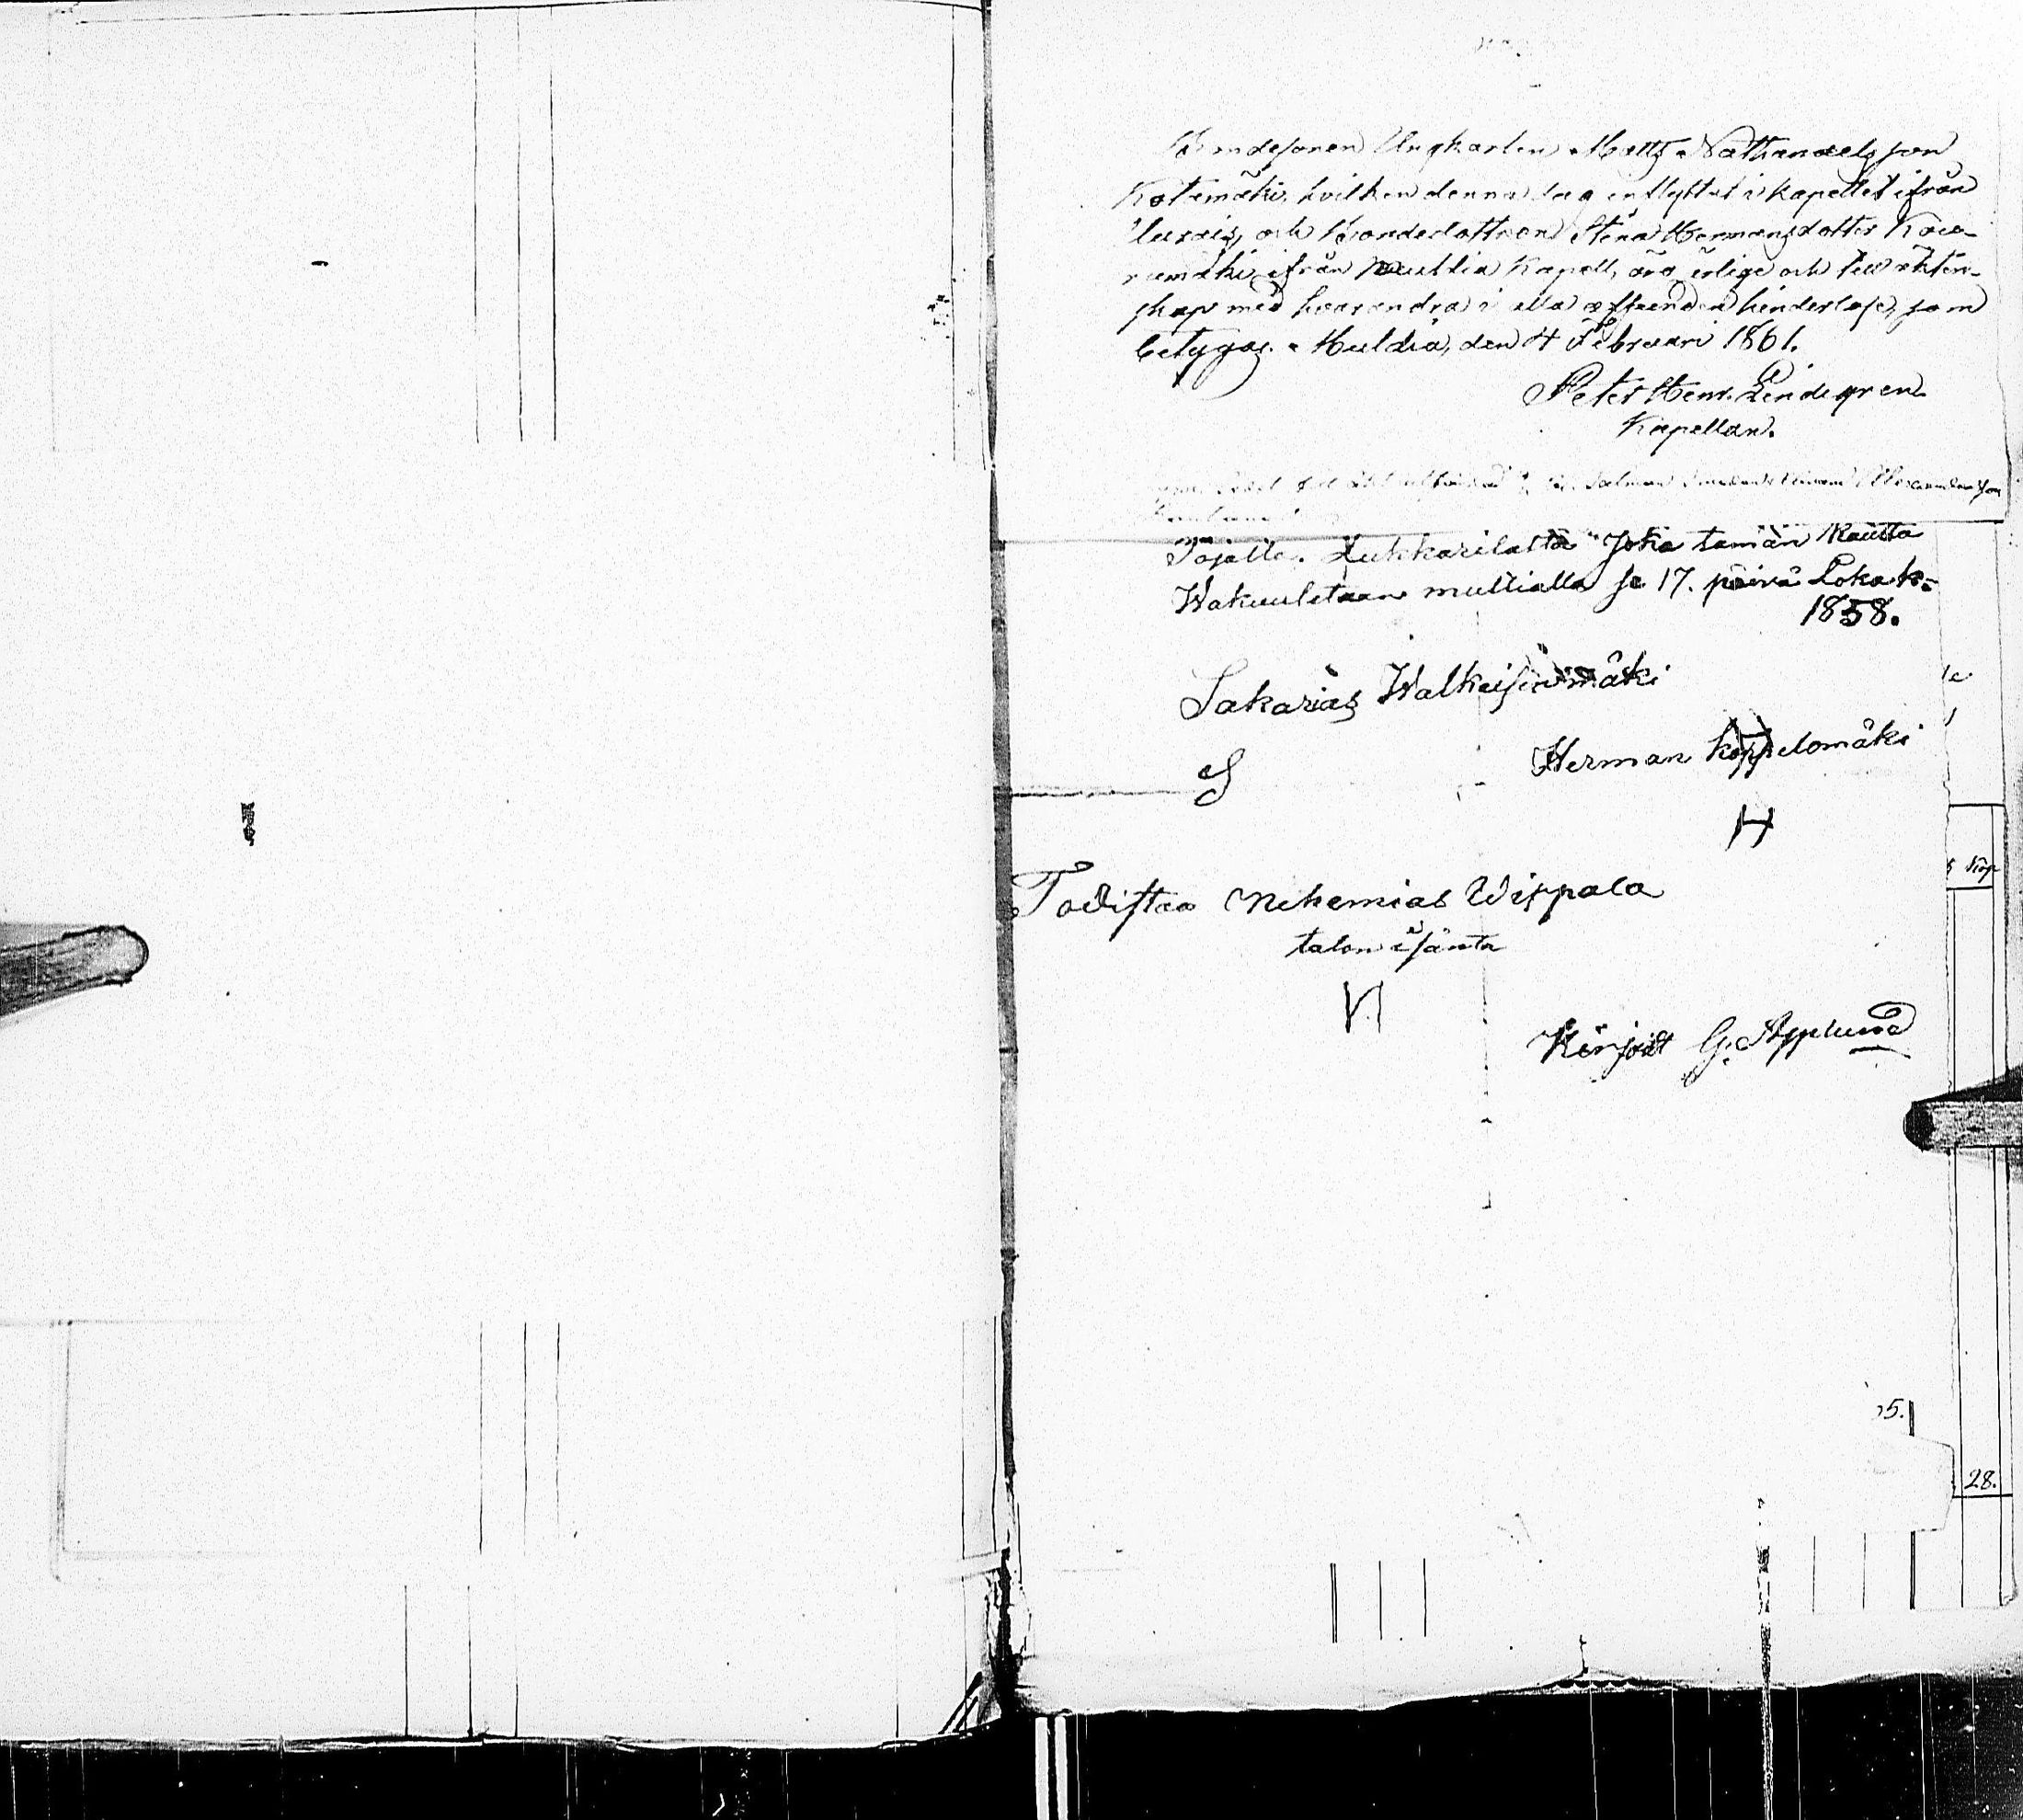 Bondesonen Ungkarlen Matts Nathanaelsson
Kotimäki, hvilken denna dag inflyttat i kapellet ifrån
och Bondedottren Stina Hermansdotter Kou-
rumäki ifrån Multia Kapell, äro ledige och till äkten-
skap med hvarandra i alla afseenden hinderlöse, som
betygas. Multia, den 4 Februari 1861.
Peter Henr. Lindegren
Kapellan.
Alexandersson
Pojalle. Lukkarilalta Joka tämän Kautta
Wakuutetaan multialla se 17. päivä Lokak:
1858.
Sakarias Walkeisenmäki
S
Herman Koppelomäki
H
Todistaa Nehemias Wippala
talon isäntä
N
Kirjoit G. Applund
Kop
5.
28.